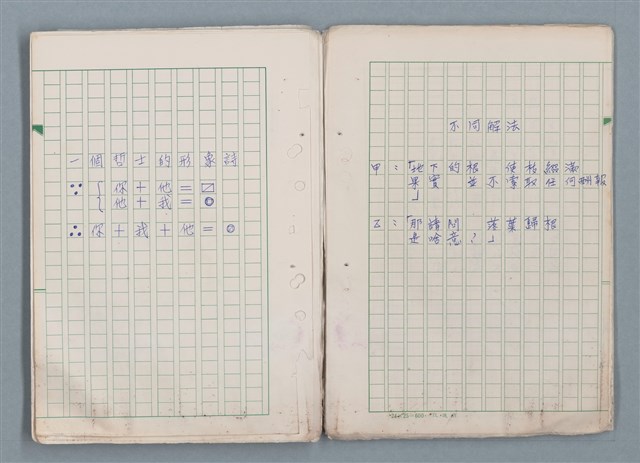 一個哲士的形象詩
∵ { 你+他=⍁
{ 他+我=⊙
∴ 你+我+他=◎
不同解法
甲：「地下的根　使枝繁滿
果實　並不索取任何酬報
」
乙：「那請問　落葉歸根
是啥意？」